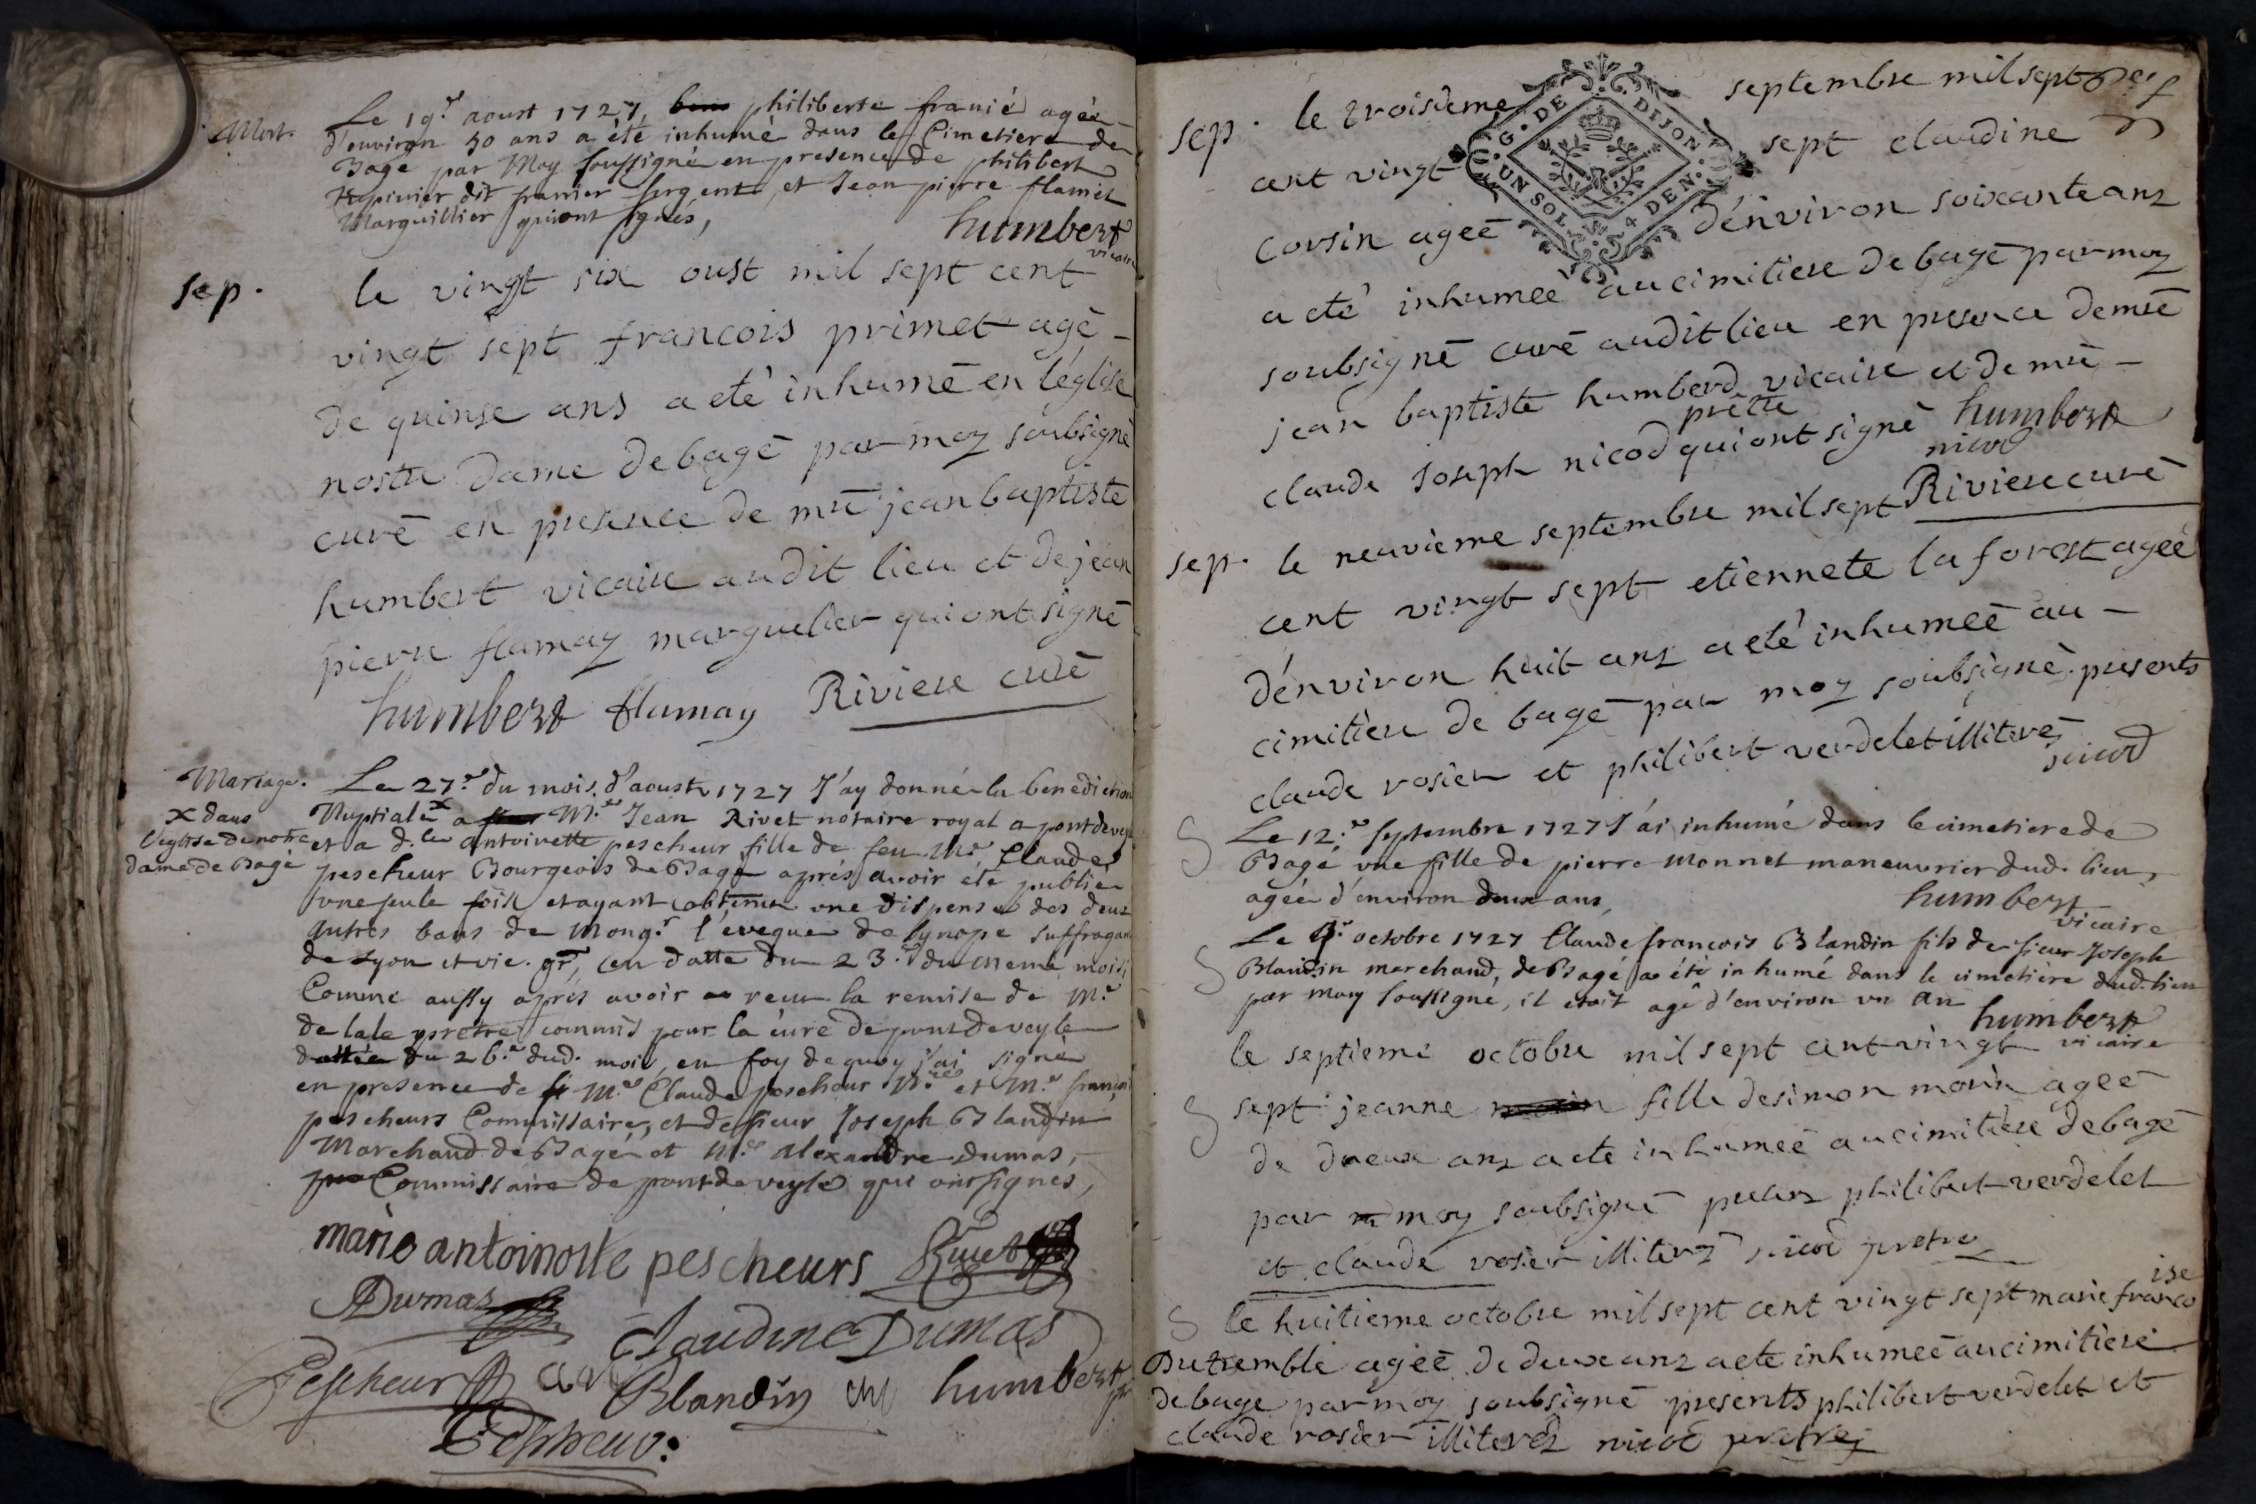 Mort.
Le 19.e aoust 1727, philiberte franié agée
d'environ 50 ans a été inhumé dans le Cimetiere de
Bagé par Moy soussigné en presence de philibert
dit franier sergent, et Jean pierre flamet
Marguillier qui ont signés,
humbert
vicaire
sep.
le vingt six oust mil sept cent
vingt sept francois primet agé
de quinse ans a eté inhumé en l'église
nostre dame de bagé par moy soubsigné
curé en presence de mre jean baptiste
humbert vicaire audit lieu et de jean
pierre flamay marguelier qui ont signé
humbert flamay Riviere curé
Mariage.
Le 27.e du mois d'aoust 1727 J'ay donné la benediction
Nuptiale x a M.e Jean Rivet notaire royal a pont de veyle
x dans
l'eglise de notre
dame de Bagé
et a d.lle antoinette pescheur fille de feu M.e Claude
pescheur Bourgeois de Bagé aprés avoir eté publié
une seule fois et ayant obtenu une dispense des deux
autres bans de Mong.r l'eveque de synope suffragant
de Lyon et vic. gr, en datte du 23.e du meme mois
Comme aussy aprés avoir receu la remise de M.e
de lale pretre commis pour la cure de pont de veyle
dattée du 26.e dud. mois, en foy de quoy j'ai signé
en presence de M.e Claude pescheur N.re et M.e françois
pescheurs Commissaire, et de sieur Joseph Blandin
Marchand de Bagé et M.e Alexandre Dumas,
Commissaire de pont de veyle qui ont signés,
marie antoinotte pescheurs Rivet
ADumas
Claudine Dumas
Pescheur
Blandin humbert
Pescheur
G. DE DIJON
UN SOL 4 DEN.
sep. le troisieme septembre mil sept
cent vingt sept claudine
corsin ageé d'environ soixante ans
a eté inhumeé au cimitiere de bagé par moy
soubsigné curé audit lieu en presence de mre
jean baptiste humberd vicaire et de mre
claude Joseph nicod prêtre qui ont signé humbert
nicod
Riviere curé
sep. le neuvieme septembre mil sept
cent vingt sept etiennete la forest ageé
d'environ huit ans a eté inhumeé au
cimitiere de bagé par moy soubsigné presents
claude rosier et philibert verdelet illiteré
nicod
Le 12.e septembre 1727 J'ai inhumé dans le cimetiere de
Bagé une fille de pierre Monnet maneuvrier dud. lieu,
agée d'environ deux ans,
humbert
vicaire
Le octobre 1727 Claude françois Blandin fils de sieur Joseph
Blandin marchand, de Bagé a été inhumé dans le cimetière dud. lieu
par moy soussigné, il etoit agé d'environ un an
humbert
vicaire
le septieme octobre mil sept cent vingt
sept jeanne fille de simon morin ageé
de deux ans a eté inhumeé au cimitiere de bagé
par moy soubsigné philibert verdelet
et claude rosier illiterz nicod pretre
le huitieme octobre mil sept cent vingt sept marie francoise
Dutremble ageé de deux ans a eté inhumeé au cimitiere
de bage par moy soubsigné presents philibert verdelet et
claude rosier illiterez nicod pretre